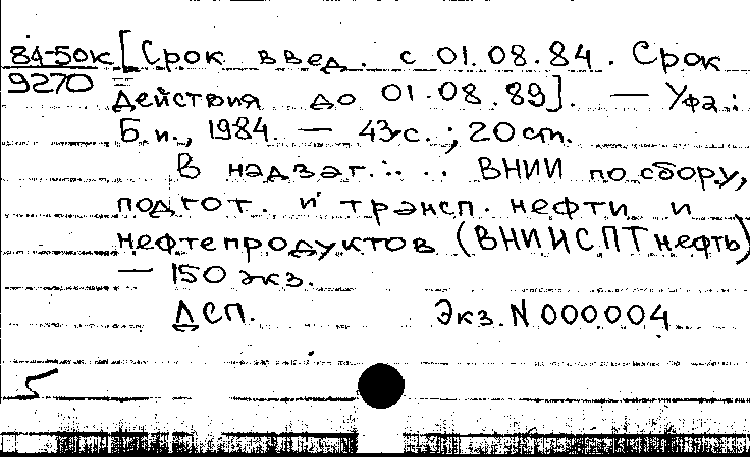 84-50к [Срок введ. с 01.08.84. Срок
9270 действия до 01.08.89]. — Уфа:
Б.и., 1984. — 43 с.; 20 см.
В надзаг.: .. ВНИИ по сбору,
подгот. и трансп. нефти и
нефтепродуктов (ВНИИСПТнефть)
— 150 экз.
ДСП. Экз. N 000004
5